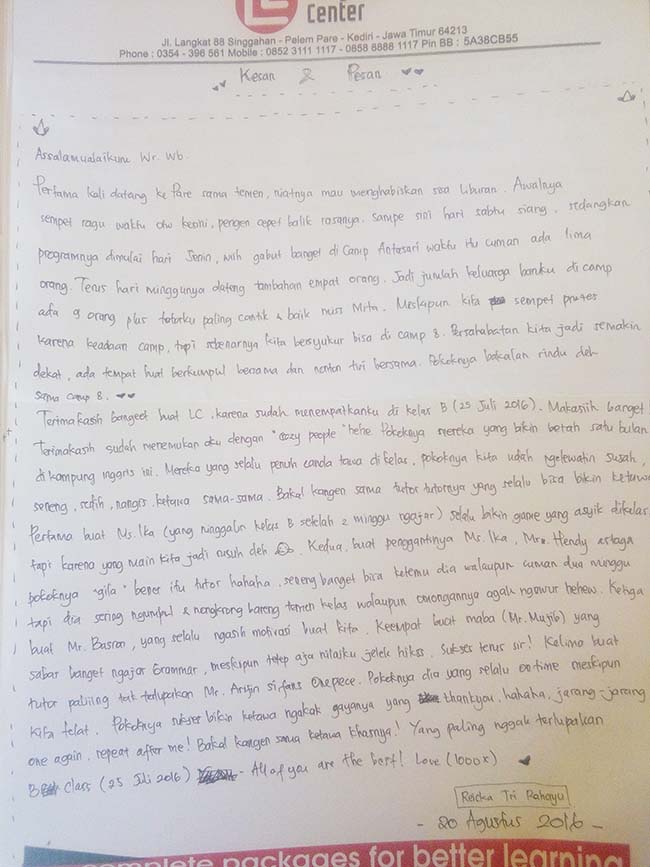 Center
Jl. Langkat 88 Singgahan - Pelem Pare - Kediri - Jawa Timur 64213
Phone : 0354 - 396 561 Mobile : 0852 3111 1117 - 0858 8888 1117 Pin BB : 5A38CB55
Kesan & Pesan
Assalamualaikum Wr. Wb.
Pertama kali datang ke Pare sama temen, niatnya mau menghabiskan sisa liburan. Awalnya
sempet ragu waktu otw kesini, pengen cepet balik rasanya. Sampe sini hari sabtu siang, sedangkan
programnya dimulai hari Senin, wih gabut banget di Camp Antasari waktu itu cuman ada lima
orang. Terus hari minggunya dateng tambahan empat orang. Jadi jumlah keluarga baruku di camp
ada 9 orang plus tutorku paling cantik & baik miss Mita. Meskipun kita sempet protes
karena keadaan camp, tapi sebenarnya kita bersyukur bisa di camp 8. Persahabatan kita jadi semakin
dekat, ada tempat buat berkumpul bersama dan nonton tivi bersama. Pokoknya bakalan rindu deh
sama camp 8.
Terimakasih bangeet buat LC, karena sudah menempatkanku di kelas B (25 Juli 2016). Makasiih banget
Terimakasih sudah menemukan aku dengan "cozy people" hehe. Pokoknya mereka yang bikin betah satu bulan
di kampung inggris ini. Mereka yang selalu penuh canda tawa di kelas, pokoknya kita udah ngelewatin susah,
seneng, sedih, nangis, ketawa sama-sama. Bakal kangen sama tutor tutornya yang selalu bisa bikin ketawa
Pertama buat Ms. Ika (yang ninggalin kelas B setelah 2 minggu ngajar) selalu bikin game yang asyik dikelas
tapi karena yang main kita jadi rusuh deh. Kedua, buat penggantinya Ms. Ika, Mr. Hendy astaga
pokoknya "gila" bener itu tutor hahaha, seneng banget bisa ketemu dia walaupun cuman dua minggu
tapi dia sering ngumpul & nongkrong bareng temen kelas walaupun omongannya agak ngawur hehew. Ketiga
buat Mr. Basron, yang selalu ngasih motivasi buat kita. Keempat buat maba (Mr. Mujib) yang
sabar banget ngajar Grammar, meskipun tetep aja nilaiku jelek hikss. Sukses terus sir! Kelima buat
tutor paliing tak terlupakan Mr. si fans Onepiece. Pokoknya dia yang selalu on time meskipun
kita telat. Pokoknya sukses bikin ketawa ngakak gayanya yang thankyou, hahaha, jarang-jarang
one again, repeat after me! Bakal kangen sama ketawa khasnya! Yang paling nggak terlupakan
B Class (25 Juli 2016) - All of you are the best! Love (1000x)
Tri Rahayu
- 20 Agustus 2016 -
complete packages for better learning